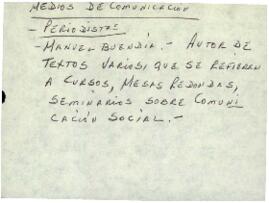 MEDIOS DE COMUNICACION
- PERIODISTAS
- MANUEL BUENDIA.- AUTOR DE
TEXTOS VARIOS, QUE SE REFIEREN
A CURSOS, MESAS REDONDAS,
SEMINARIOS SOBRE COMUNI
CACIÓN SOCIAL.-